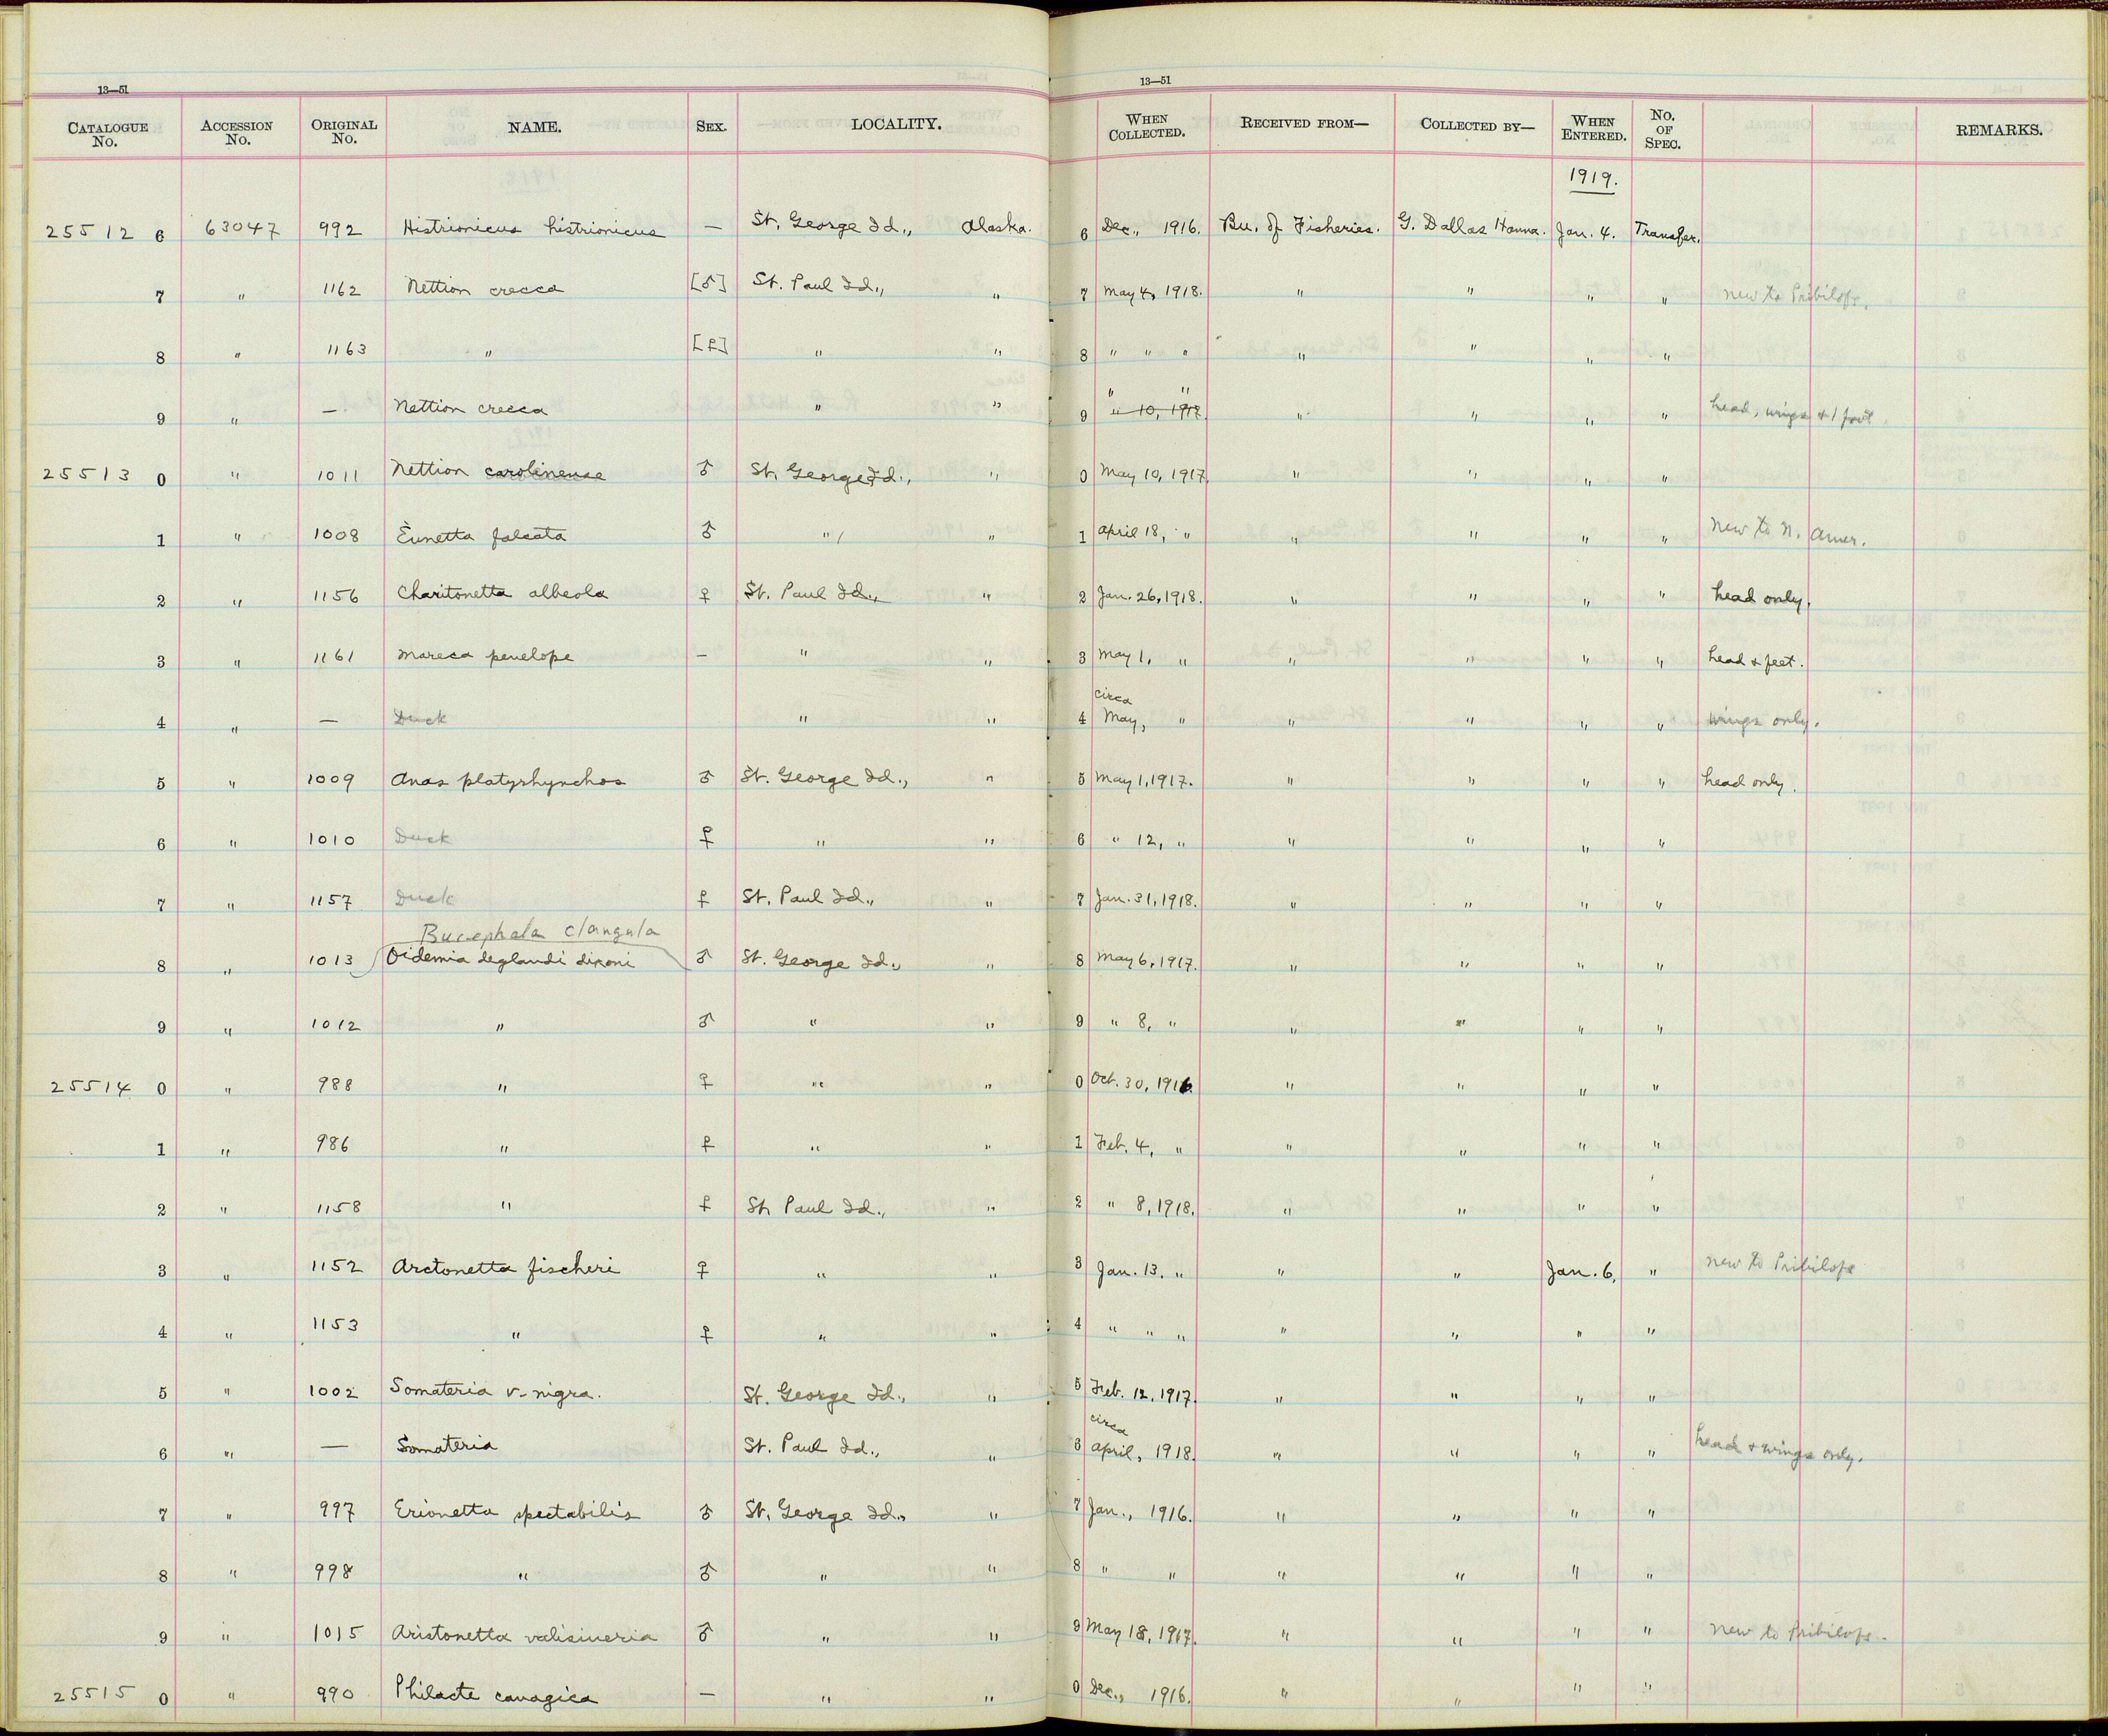 13—51
13—51
CATALOGUE No. ACCESSION No. ORIGINAL No. NAME. SEX. LOCALITY. WHEN COLLECTED. RECEIVED FROM— COLLECTED BY— WHEN ENTERED. No. OF SPEC. REMARKS.
1919.
25512 6 63047 992 Histrionicus histrionicus — St. George Id., Alaska. 6 Dec., 1916. Bu. of Fisheries. G. Dallas Hanna. Jan. 4. Transfer.
7 " 1162 Nettion crecca [♂] St. Paul Id., " 7 May 4, 1918. " " " " new to Pribilofs.
8 " 1163 " [♀] " " 8 " " " " " " "
" "
9 " — Nettion crecca " " 9 " 10, 1917. " " " " head, wings & 1 foot.
25513 0 " 1011 Nettion carolinense ♂ St. George Id., " 0 May 10, 1917. " " " "
1 " 1008 Eunetta falcata ♂ " " 1 April 18, " " " " " New to N. Amer.
2 " 1156 Charitonetta albeola ♀ St. Paul Id., " 2 Jan. 26, 1918. " " " " head only.
3 " 1161 Mareca penelope — " " 3 May 1, " " " " " head & feet.
circa
4 " — Duck " " 4 May, " " " " " wings only.
5 " 1009 Anas platyrhynchos ♂ St. George Id., " 5 May 1, 1917. " " " " head only.
6 " 1010 Duck ♀ " " 6 " 12, " " " " "
7 " 1157 Duck ♀ St. Paul Id., " 7 Jan. 31, 1918. " " " "
Bucephala clangula
8 " 1013 Oidemia deglandi dixoni ♂ St. George Id., " 8 May 6, 1917. " " " "
9 " 1012 " ♂ " " 9 " 8, " " " " "
25514 0 " 988 " ♀ " " 0 Oct. 30, 1916. " " " "
1 " 986 " ♀ " " 1 Feb. 4, " " " " "
2 " 1158 " ♀ St. Paul Id., " 2 " 8, 1918. " " " "
3 " 1152 Arctonetta fischeri ♀ " " 3 Jan. 13, " " " Jan. 6, " new to Pribilofs
4 " 1153 " ♀ " " 4 " " " " " " "
5 " 1002 Somateria v-nigra. St. George Id., " 5 Feb. 12, 1917. " " " "
circa
6 " — Somateria St. Paul Id., " 6 April, 1918. " " " " head & wings only.
7 " 997 Erionetta spectabilis ♂ St. George Id., " 7 Jan., 1916. " " " "
8 " 998 " ♂ " " 8 " " " " " "
9 " 1015 Aristonetta valisineria ♂ " " 9 May 18, 1917. " " " " new to Pribilofs.
25515 0 " 990 Philacte canagica — " " 0 Dec., 1916. " " " "